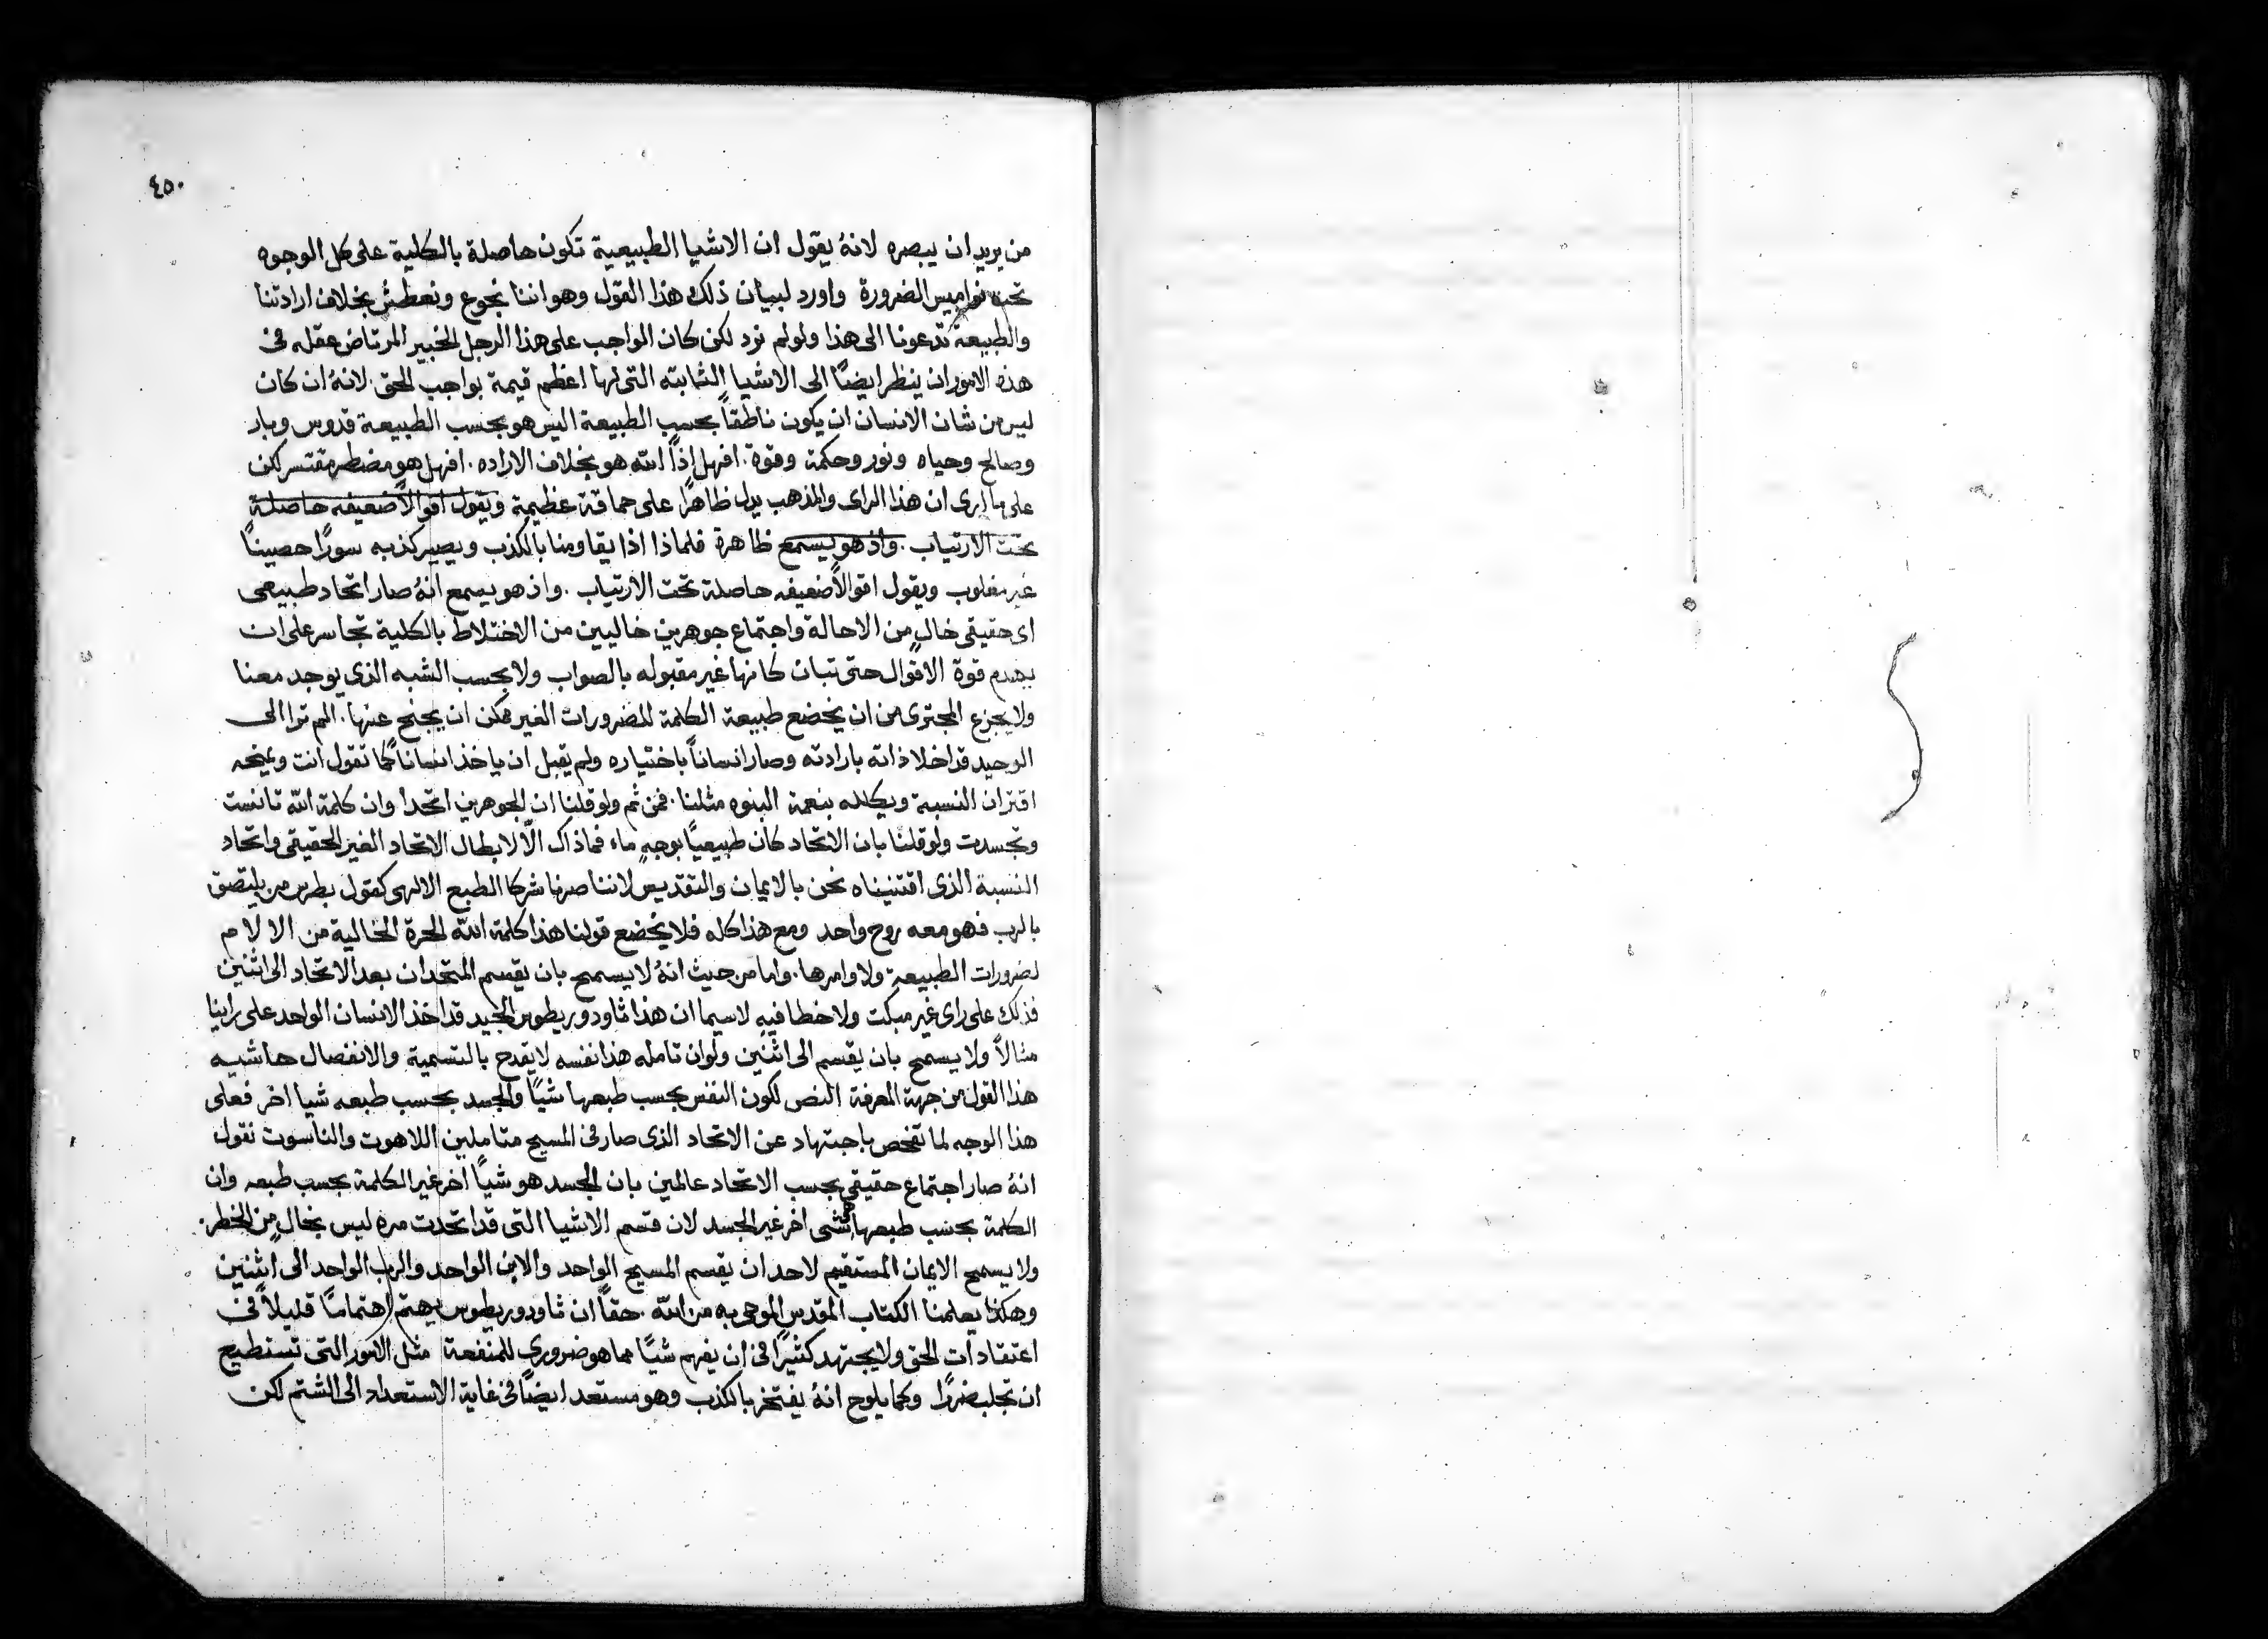 ٤٥٠
من يريد ان يبصره لانهُ يقول ان الاشيا الطبيعية تكون حاصلة بالكلية على كل الوجوه
تحت نواميس الضرورة واورد لبيان ذلك هذا القول وهو اننا نجوع ونعطش بخلاف ارادتنا
والطبيعة تدعونا الى هذا ولو لم نرد لكن كان الواجب على هذا الرجل الخبير المرتاض عقله فى
هذه الامور ان ينظر ايضًا الى الاشيا الثابته التى لها اعظم قيمة بواجب الحق. لانهُ ان كان
ليس من شان الانسان ان يكون ناطقاً بحسب الطبيعة اليس هو بحسب الطبيعة قدوس وبار
وصالح وحياه ونور وحكمة وقوة. افهل اذاً الله هو بخلاف الاراده. افهل هو مضطر مقتسر لكن
على ما ارى ان هذا الراى والمذهب يدل ظاهرًا على حماقة عظيمة ويقول اقوالاً ضعيفه حاصلةً
تحت الارتياب. واذ هو يسمع ظاهرة فلماذا اذا يقاومنا بالكذب ويصير كذبه سورًا حصينًا
غير مغلوب ويقول اقوالاً ضعيفه حاصلة تحت الارتياب. واذ هو يسمع انهُ صار اتحاد طبيعى
اى حقيقى خالٍ من الاحالة واجتماع جوهرين خاليين من الاختلاط بالكلية تجاسر على ان
يهدم قوة الاقوال حتى تبان كانها غير مقبوله بالصواب ولا بحسب الشبه الذى يوجد معنا
ولا يجزع المجترى من ان يخضع طبيعة الكلمة للضرورات الغير ممكن ان يجنح عنها. الم ترا الى
الوحيد قد اخلا ذاته بارادته وصار انساناً باختياره ولم يقبل ان ياخذ انساناً كما تقول انت ويمنحه
اقتران النسبة ويكلله بنعمة البنوه مثلنا. فمن ثم ولو قلنا ان الجوهرين اتحدا وان كلمة الله تانست
وتجسدت ولو قلنا بان الاتحاد كان طبيعيًا بوجهٍ ما، فما ذاك الّا لابطال الاتحاد الغير الحقيقى واتحاد
النسبة الذى اقتنيناه نحن بالايمان والتقديس لاننا صرنا شركا الطبع الالهى كقول بطرس من يلتصق
بالرب فهو معه روح واحد ومع هذا كله فلا يخضع قولنا هذا كلمة الله الحرة الخالية من الالام
لضرورات الطبيعة ولاوامرها. واما من حيث انهُ لا يسمح بان يقسم المتحدان بعد الاتحاد الى اثنين
فذلك على راى غير مبكت ولا خطا فيه لاسيما ان هذا ثاودوريطوس الجيد قد اخذ الانسان الواحد على راينا
مثالاً ولا يسمح بان يقسم الى اثنين ولو ان تامله هذا نفسه لا يقدح بالتسمية والانفصال حاشيه
هذا القول من جهة المعرفة النص لكون النفس بحسب طبعها شيًا والجسد بحسب طبعه شيا اخر فعلى
هذا الوجه لما تفحص باجتهاد عن الاتحاد الذى صار فى المسيح متاملين اللاهوت والناسوت نقول
انهُ صار اجتماع حقيقي بحسب الاتحاد عالمين بان الجسد هو شيًا اخر غير الكلمة بحسب طبعه وان
الكلمة بحسب طبعها هى شى اخر غير الجسد لان قسم الاشيا التى قد اتحدت مره ليس بخالٍ من الخطر.
ولا يسمح الايمان المستقيم لاحد ان يقسم المسيح الواحد والابن الواحد والرب الواحد الى اثنين
وهكذا يعلمنا الكتاب المقدس الموحى به من الله. حقاً ان ثاودوريطوس يهتم اهتمامًا قليلاً فى
اعتقادات الحق ولا يجتهد كثيرًا فى ان يفهم شيًا مما هو ضرورى للمنفعة مثل الامور التى تستطيع
ان تجلب ضررًا وكما يلوح انهُ يفتخر بالكذب وهو مستعد ايضًا فى غاية الاستعداد الى الشتم لكن